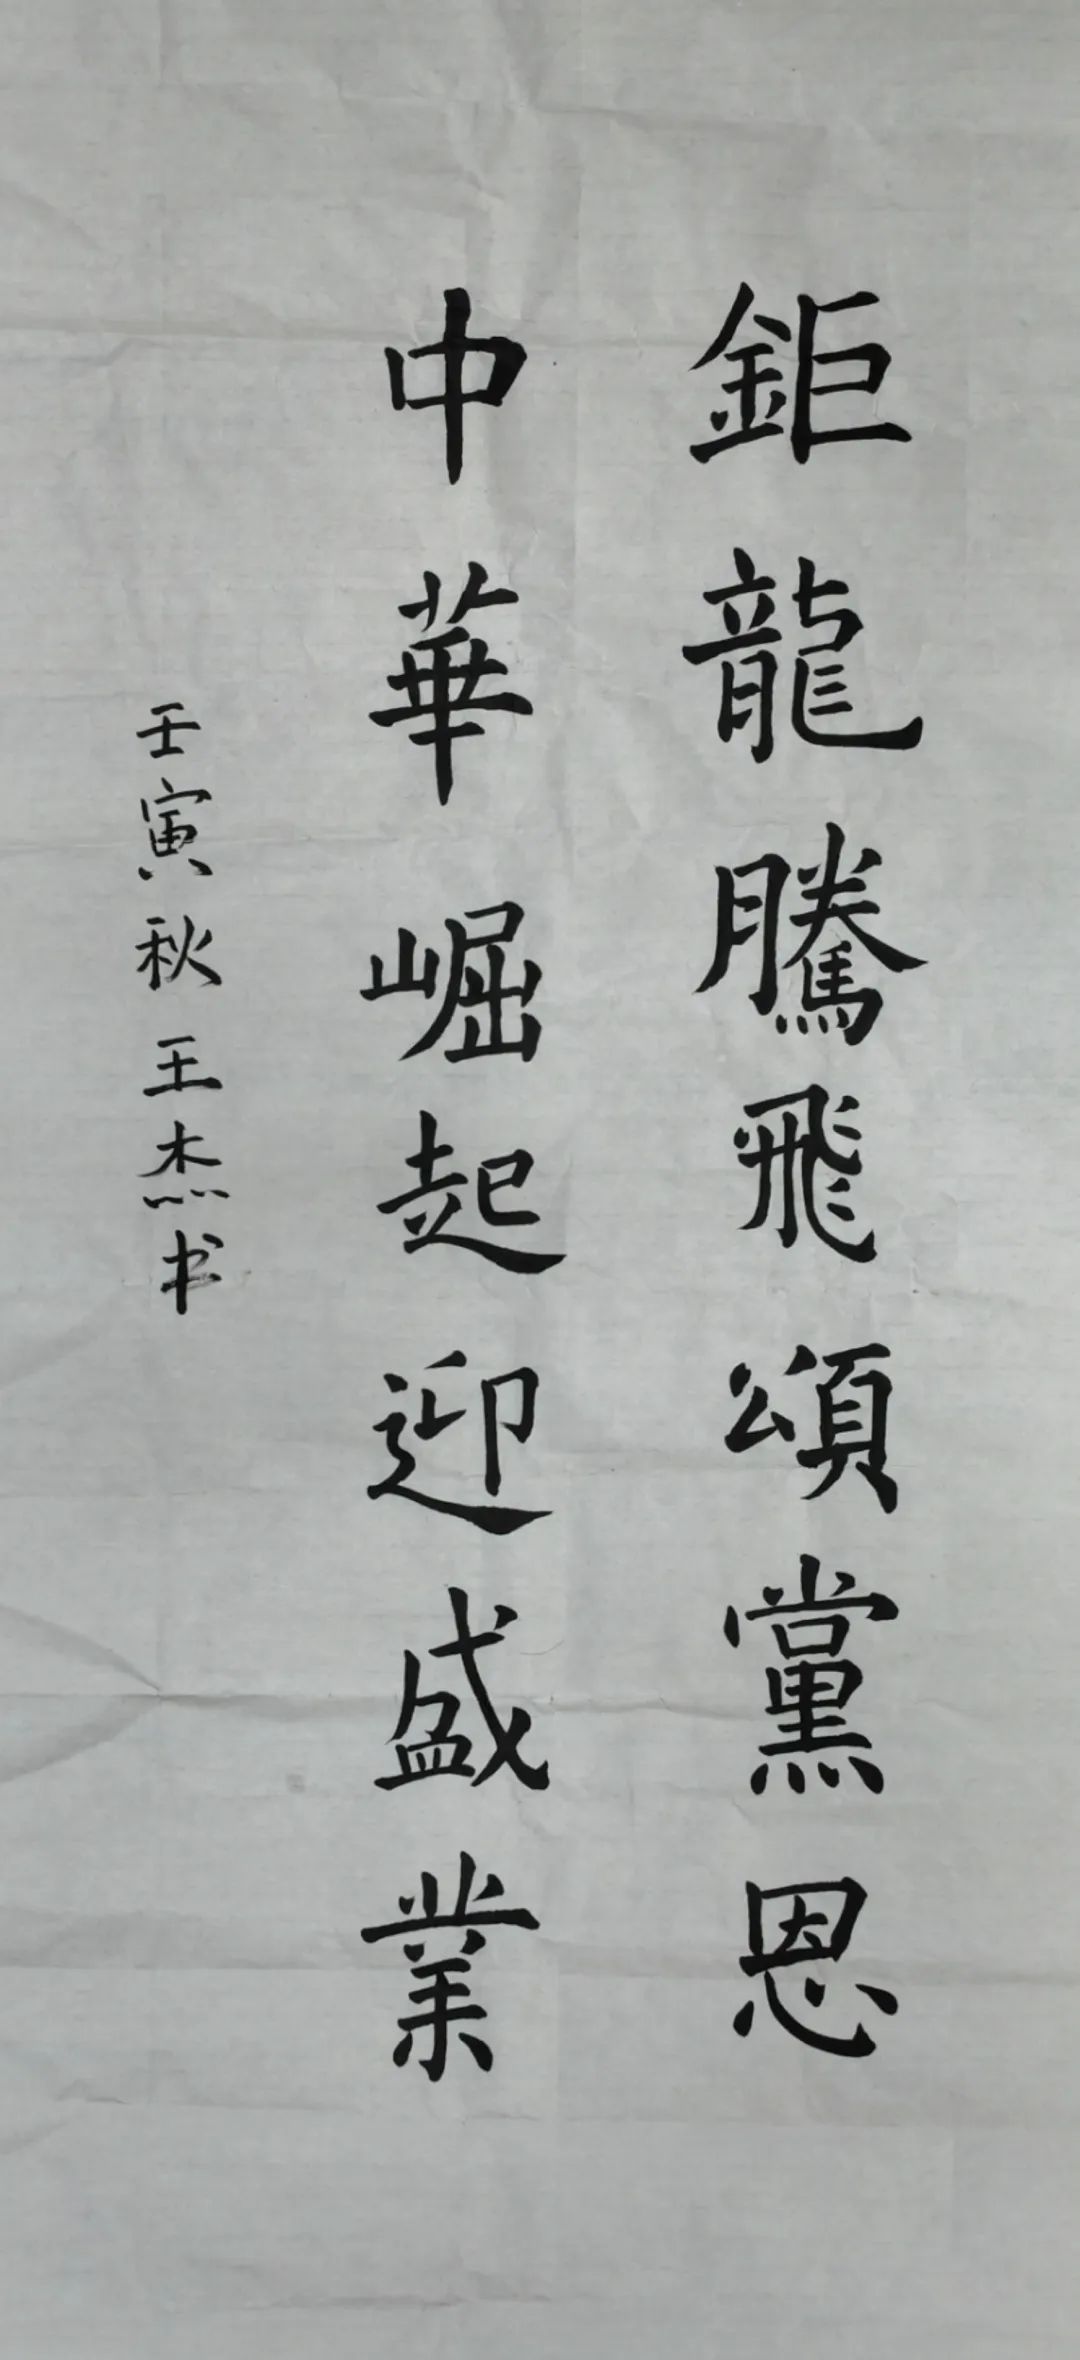 鉅龍騰飛頌黨恩
中華崛起迎盛業
壬寅秋王杰书